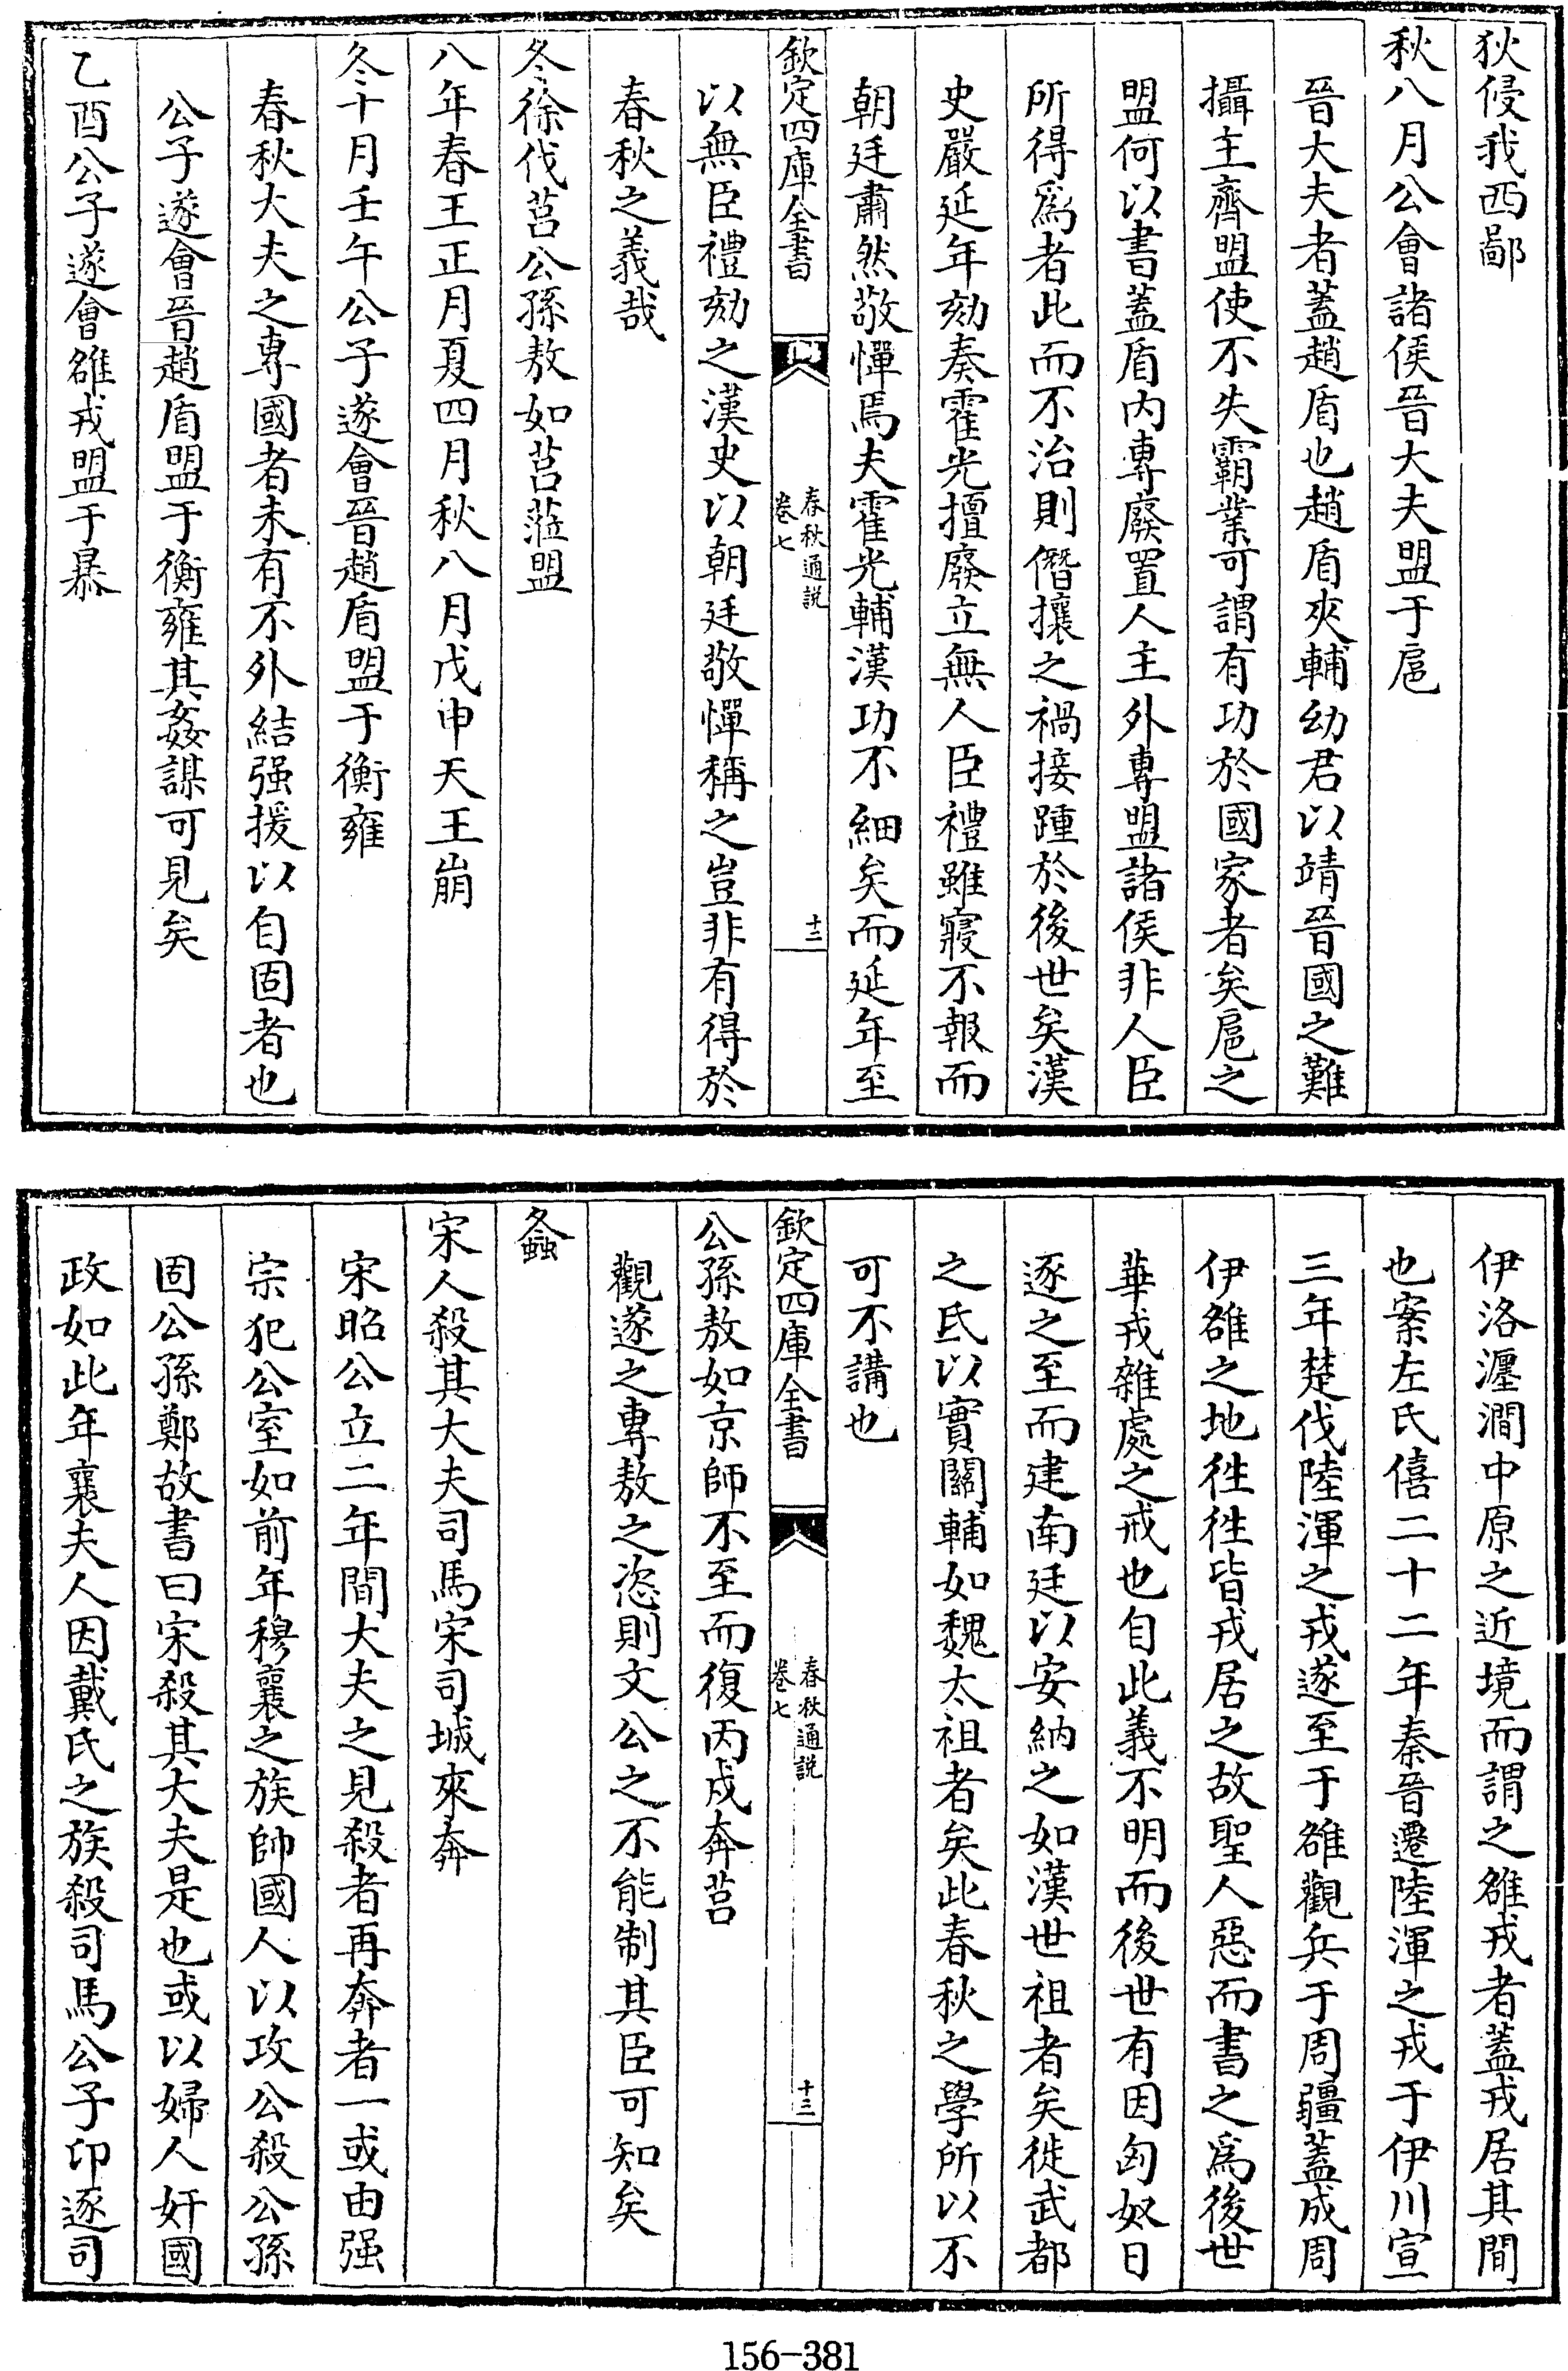 狄侵我西鄙
秋八月公會諸侯晉大夫盟于扈
晉大夫者蓋趙盾也趙盾夾輔幼君以靖晉國之難
攝主齊盟使不失霸業可謂有功於國家者矣扈之
盟何以書蓋盾内專廢置人主外專盟諸侯非人臣
所得爲者此而不治則僭攘之禍接踵於後世矣漢
史嚴延年劾奏霍光擅廢立無人臣禮雖寢不報而
朝廷肅然敬憚焉夫霍光輔漢功不細矣而延年至
欽定四庫全書
春秋通説
卷七
十二
以無臣禮劾之漢史以朝廷敬憚稱之豈非有得於
春秋之義哉
冬徐伐莒公孫敖如莒蒞盟
八年春王正月夏四月秋八月戊申天王崩
冬十月壬午公子遂會晉趙盾盟于衡雍
春秋大夫之專國者未有不外結强援以自固者也
公子遂會晉趙盾盟于衡雍其姦謀可見矣
乙酉公子遂會雒戎盟于暴
伊洛瀍澗中原之近境而謂之雒戎者蓋戎居其間
也案左氏僖二十二年秦晉遷陸渾之戎于伊川宣
三年楚伐陸渾之戎遂至于雒觀兵于周疆蓋成周
伊雒之地徃徃皆戎居之故聖人惡而書之爲後世
華戎雜處之戒也自此義不明而後世有因匈奴日
逐之至而建南廷以安納之如漢世祖者矣徙武都
之氐以實關輔如魏太祖者矣此春秋之學所以不
可不講也
欽定四庫全書
春秋通説
卷七
十三
公孫敖如京師不至而復丙戌奔莒
觀遂之專敖之恣則文公之不能制其臣可知矣
螽
宋人殺其大夫司馬宋司城來奔
宋昭公立二年間大夫之見殺者再奔者一或由强
宗犯公室如前年穆襄之族帥國人以攻公殺公孫
固公孫鄭故書曰宋殺其大夫是也或以婦人奸國
政如此年襄夫人因戴氏之族殺司馬公子卬逐司
156-381